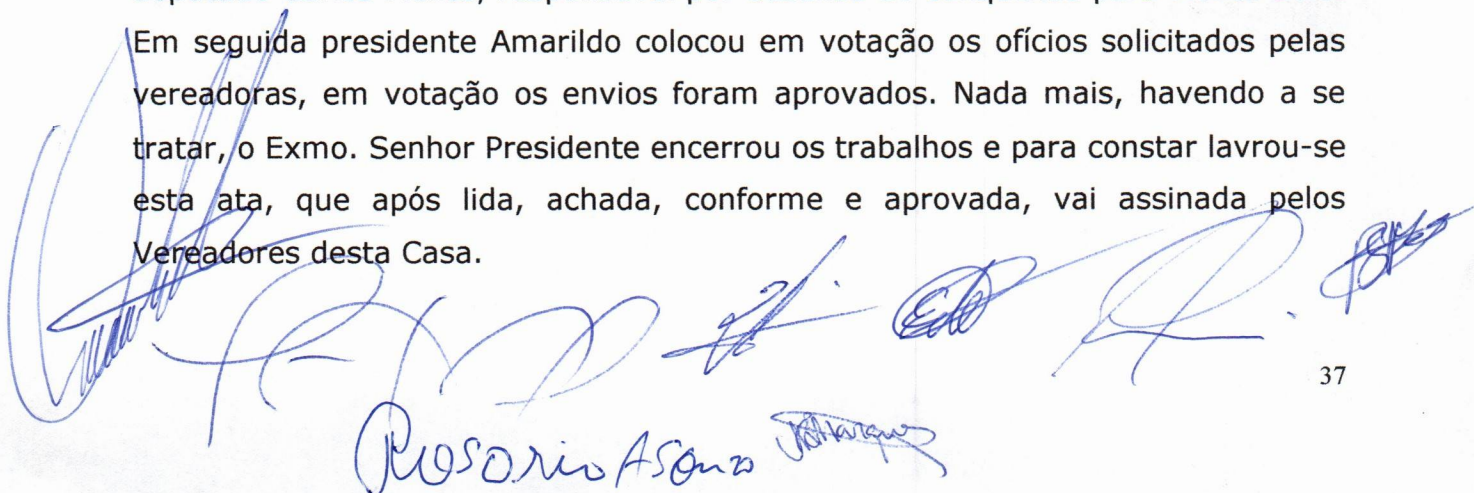 Em seguida presidente Amarildo colocou em votação os ofícios solicitados pelas
vereadoras, em votação os envios foram aprovados. Nada mais, havendo a se
tratar, o Exmo. Senhor Presidente encerrou os trabalhos e para constar lavrou-se
esta ata, que após lida, achada, conforme e aprovada, vai assinada pelos
Vereadores desta Casa.
37
Rosorio A Souza